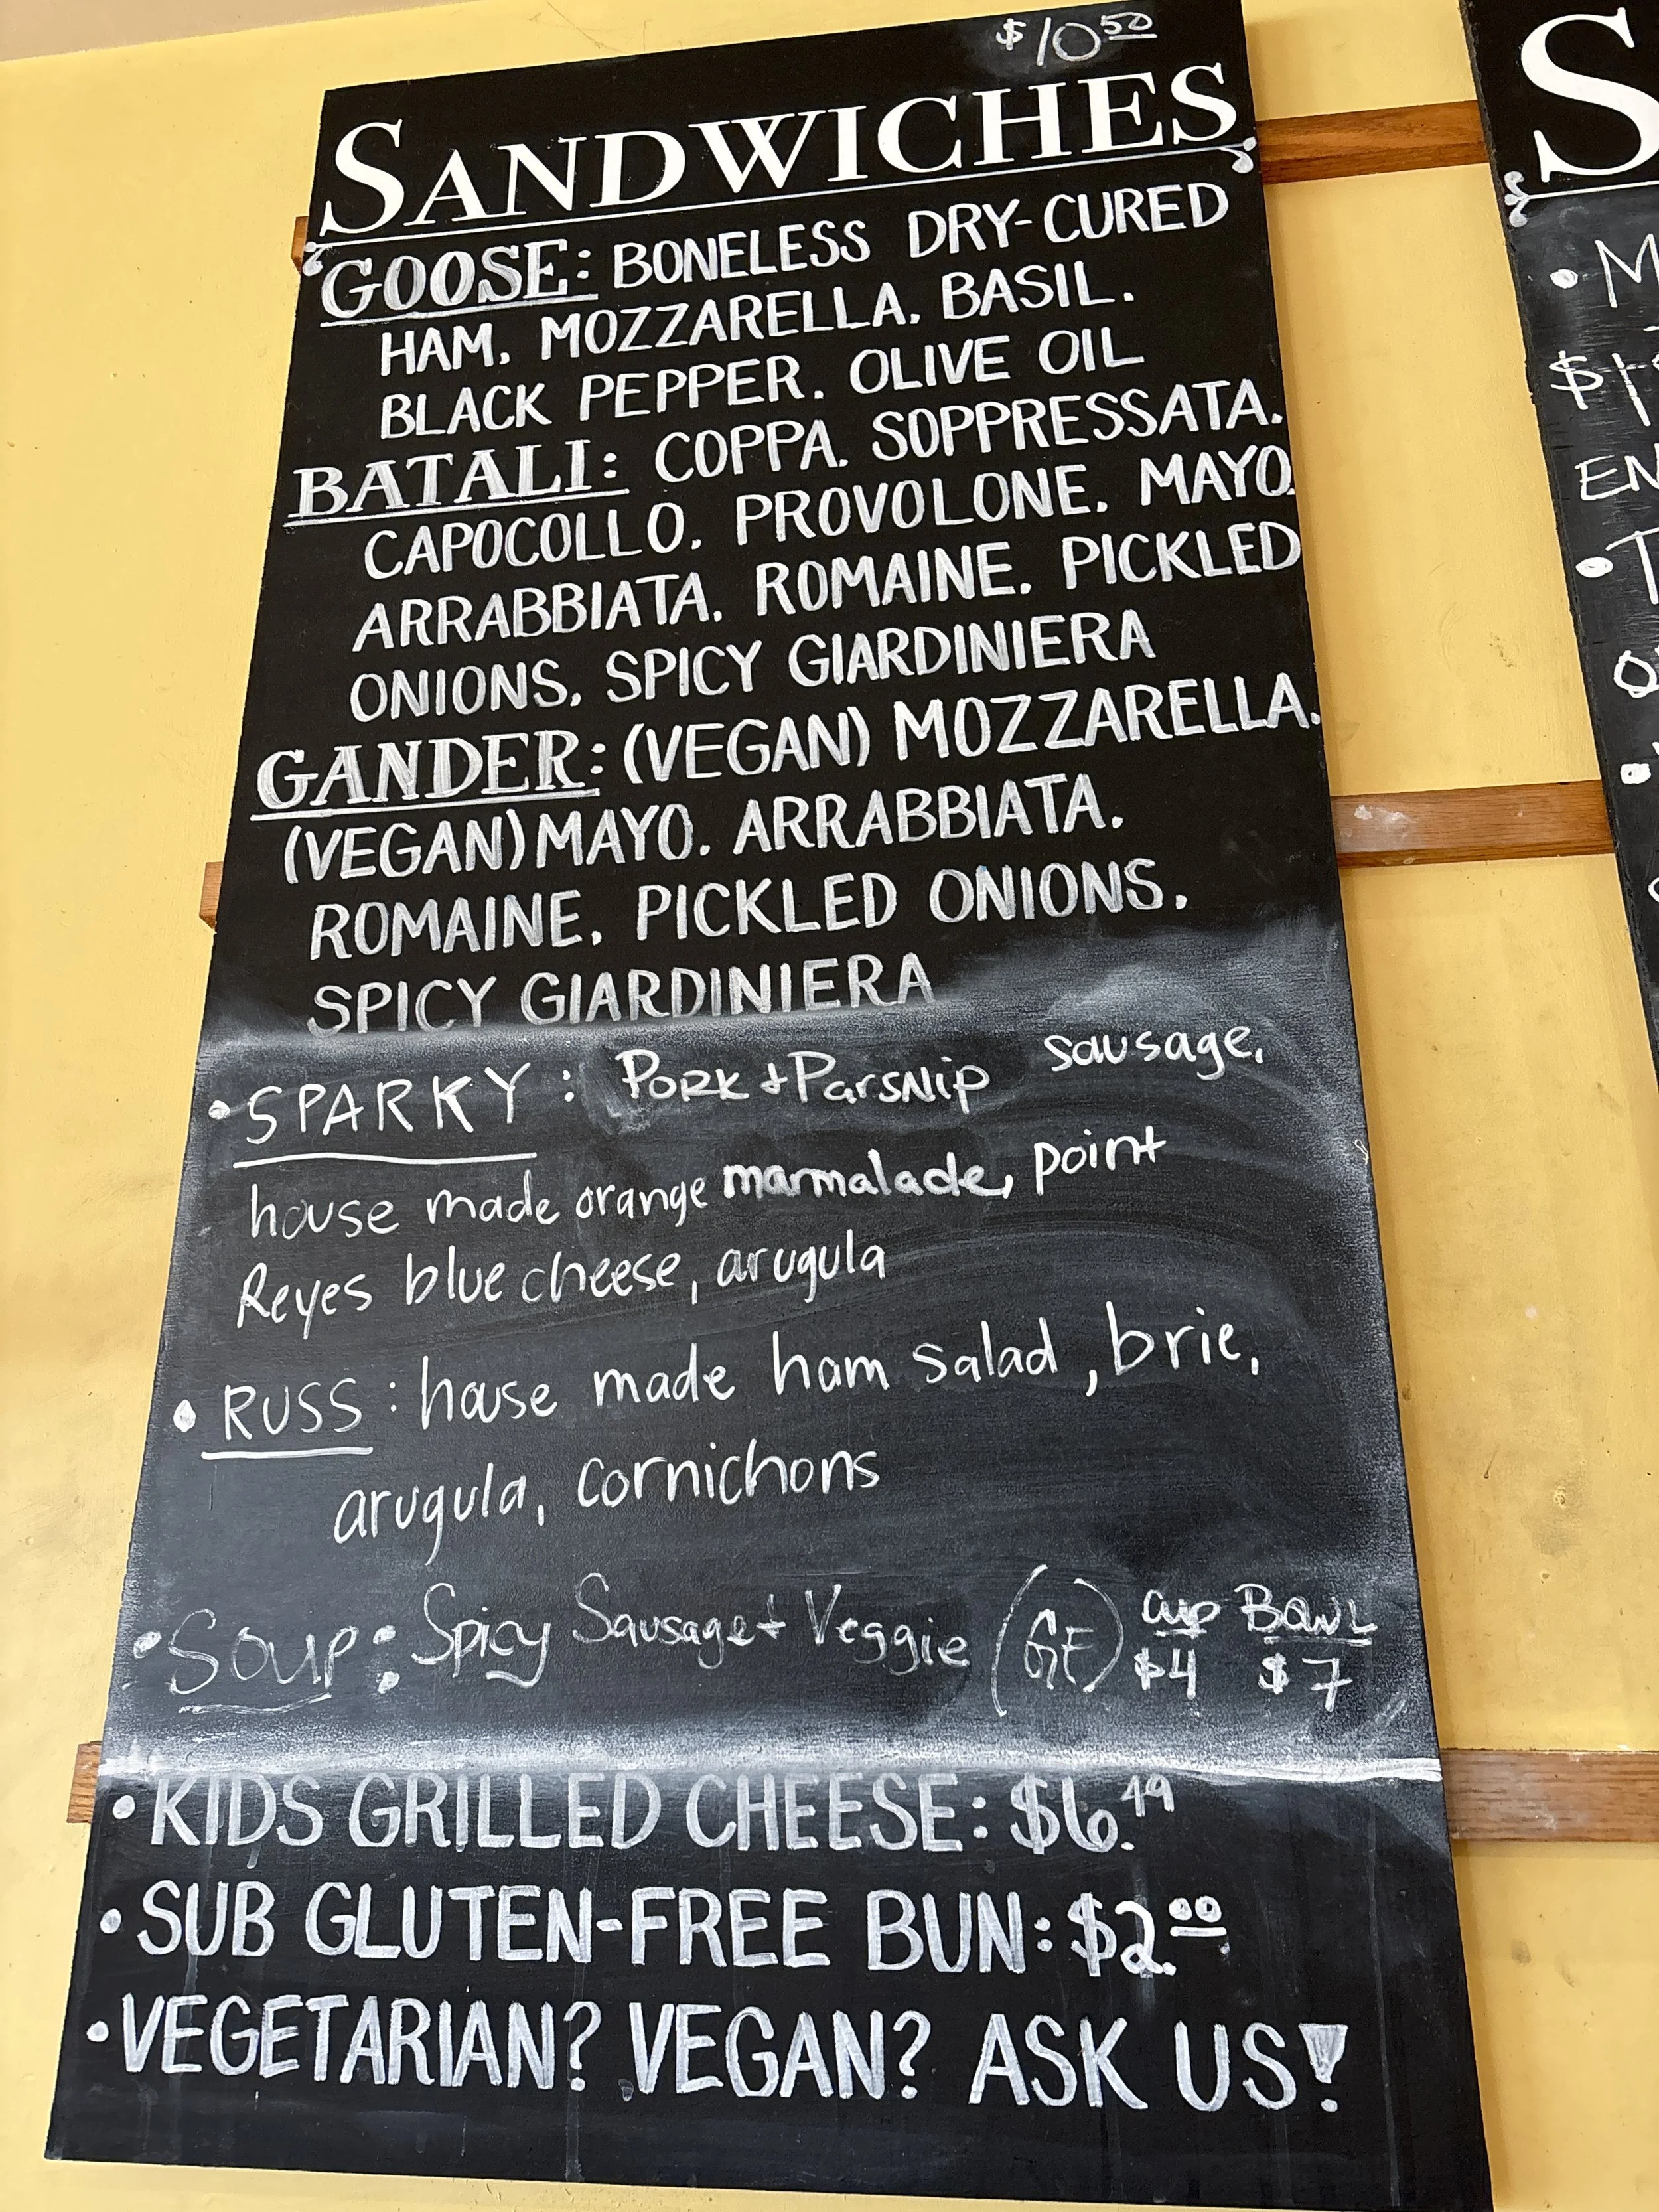 $10.50
SANDWICHES
GOOSE: BONELESS DRY-CURED
HAM. MOZZARELLA. BASIL.
BLACK PEPPER. OLIVE OIL
BATALI: COPPA. SOPPRESSATA.
CAPOCOLLO. PROVOLONE. MAYO.
ARRABBIATA. ROMAINE. PICKLED
ONIONS. SPICY GIARDINIERA
GANDER: (VEGAN) MOZZARELLA.
(VEGAN) MAYO. ARRABBIATA.
ROMAINE. PICKLED ONIONS.
SPICY GIARDINIERA
• SPARKY: Pork + Parsnip sausage,
house made orange marmalade, point
Reyes blue cheese, arugula
• RUSS: house made ham salad, brie,
arugula, cornichons
• Soup: Spicy Sausage + Veggie (GF) cup $4 Bowl $7
• KIDS GRILLED CHEESE: $6.49
• SUB GLUTEN-FREE BUN: $2.00
• VEGETARIAN? VEGAN? ASK US!